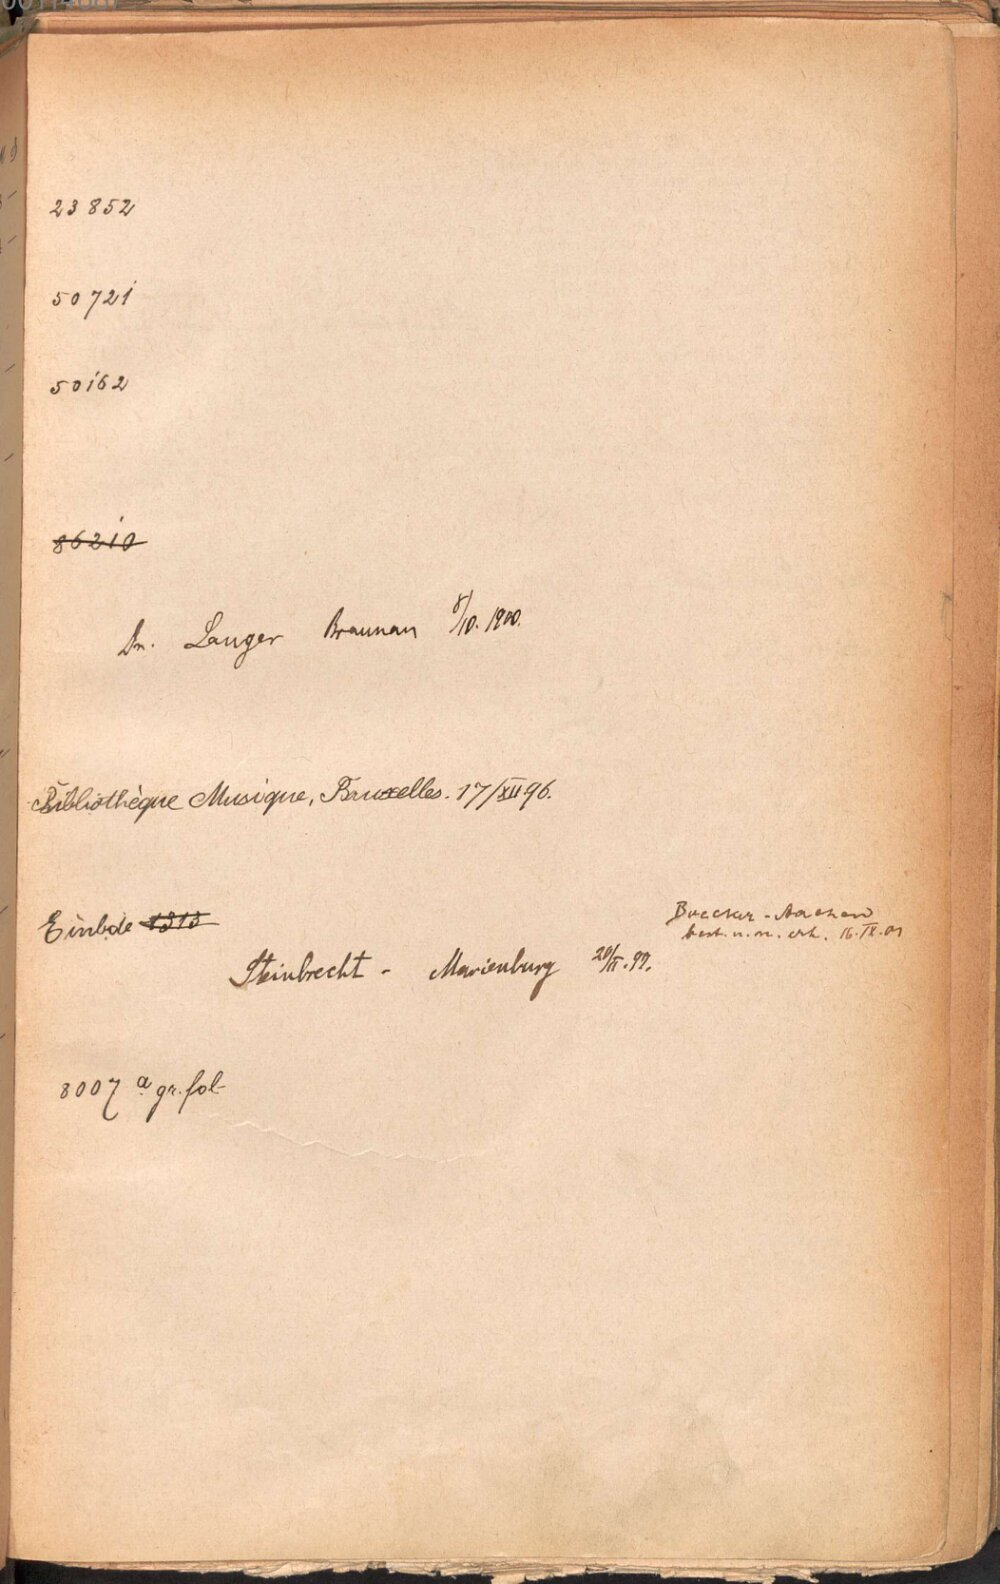 23852
50721
50162
86210
Dr. Langer Braunau 8/10. 1900.
Bibliothèque Musique, Bruxelles. 17/XII 96.
Einbde 1313
Boecker - Aachen
best. u. n. erh. 16. IX. 01
Steinbrecht - Marienburg 20/II. 99.
8007 a gr. fol